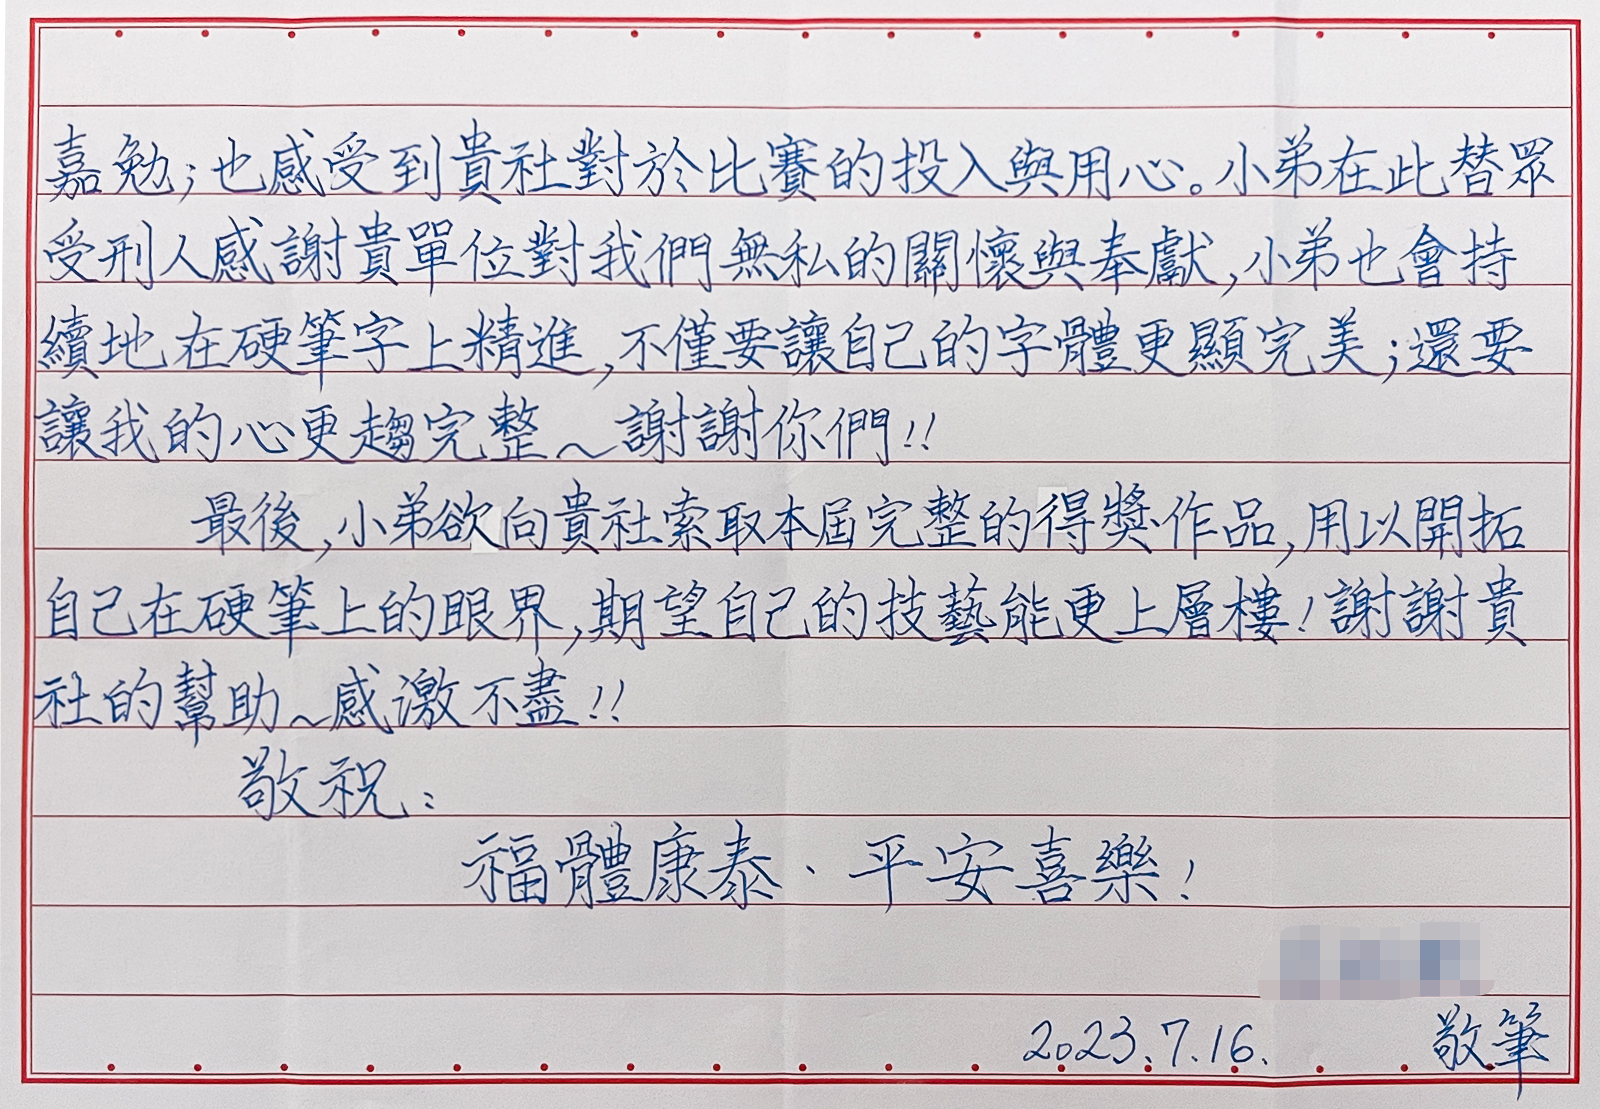 嘉勉;也感受到貴社對於比賽的投入與用心。小弟在此替眾
受刑人感謝貴單位對我們無私的關懷與奉獻,小弟也會持
續地在硬筆字上精進,不僅要讓自己的字體更顯完美;還要
讓我的心更趨完整~謝謝你們!!
最後,小弟欲向貴社索取本屆完整的得獎作品,用以開拓
自己在硬筆上的眼界,期望自己的技藝能更上層樓!謝謝貴
社的幫助~感激不盡!!
敬祝:
福體康泰、平安喜樂!
2023.7.16. 敬筆